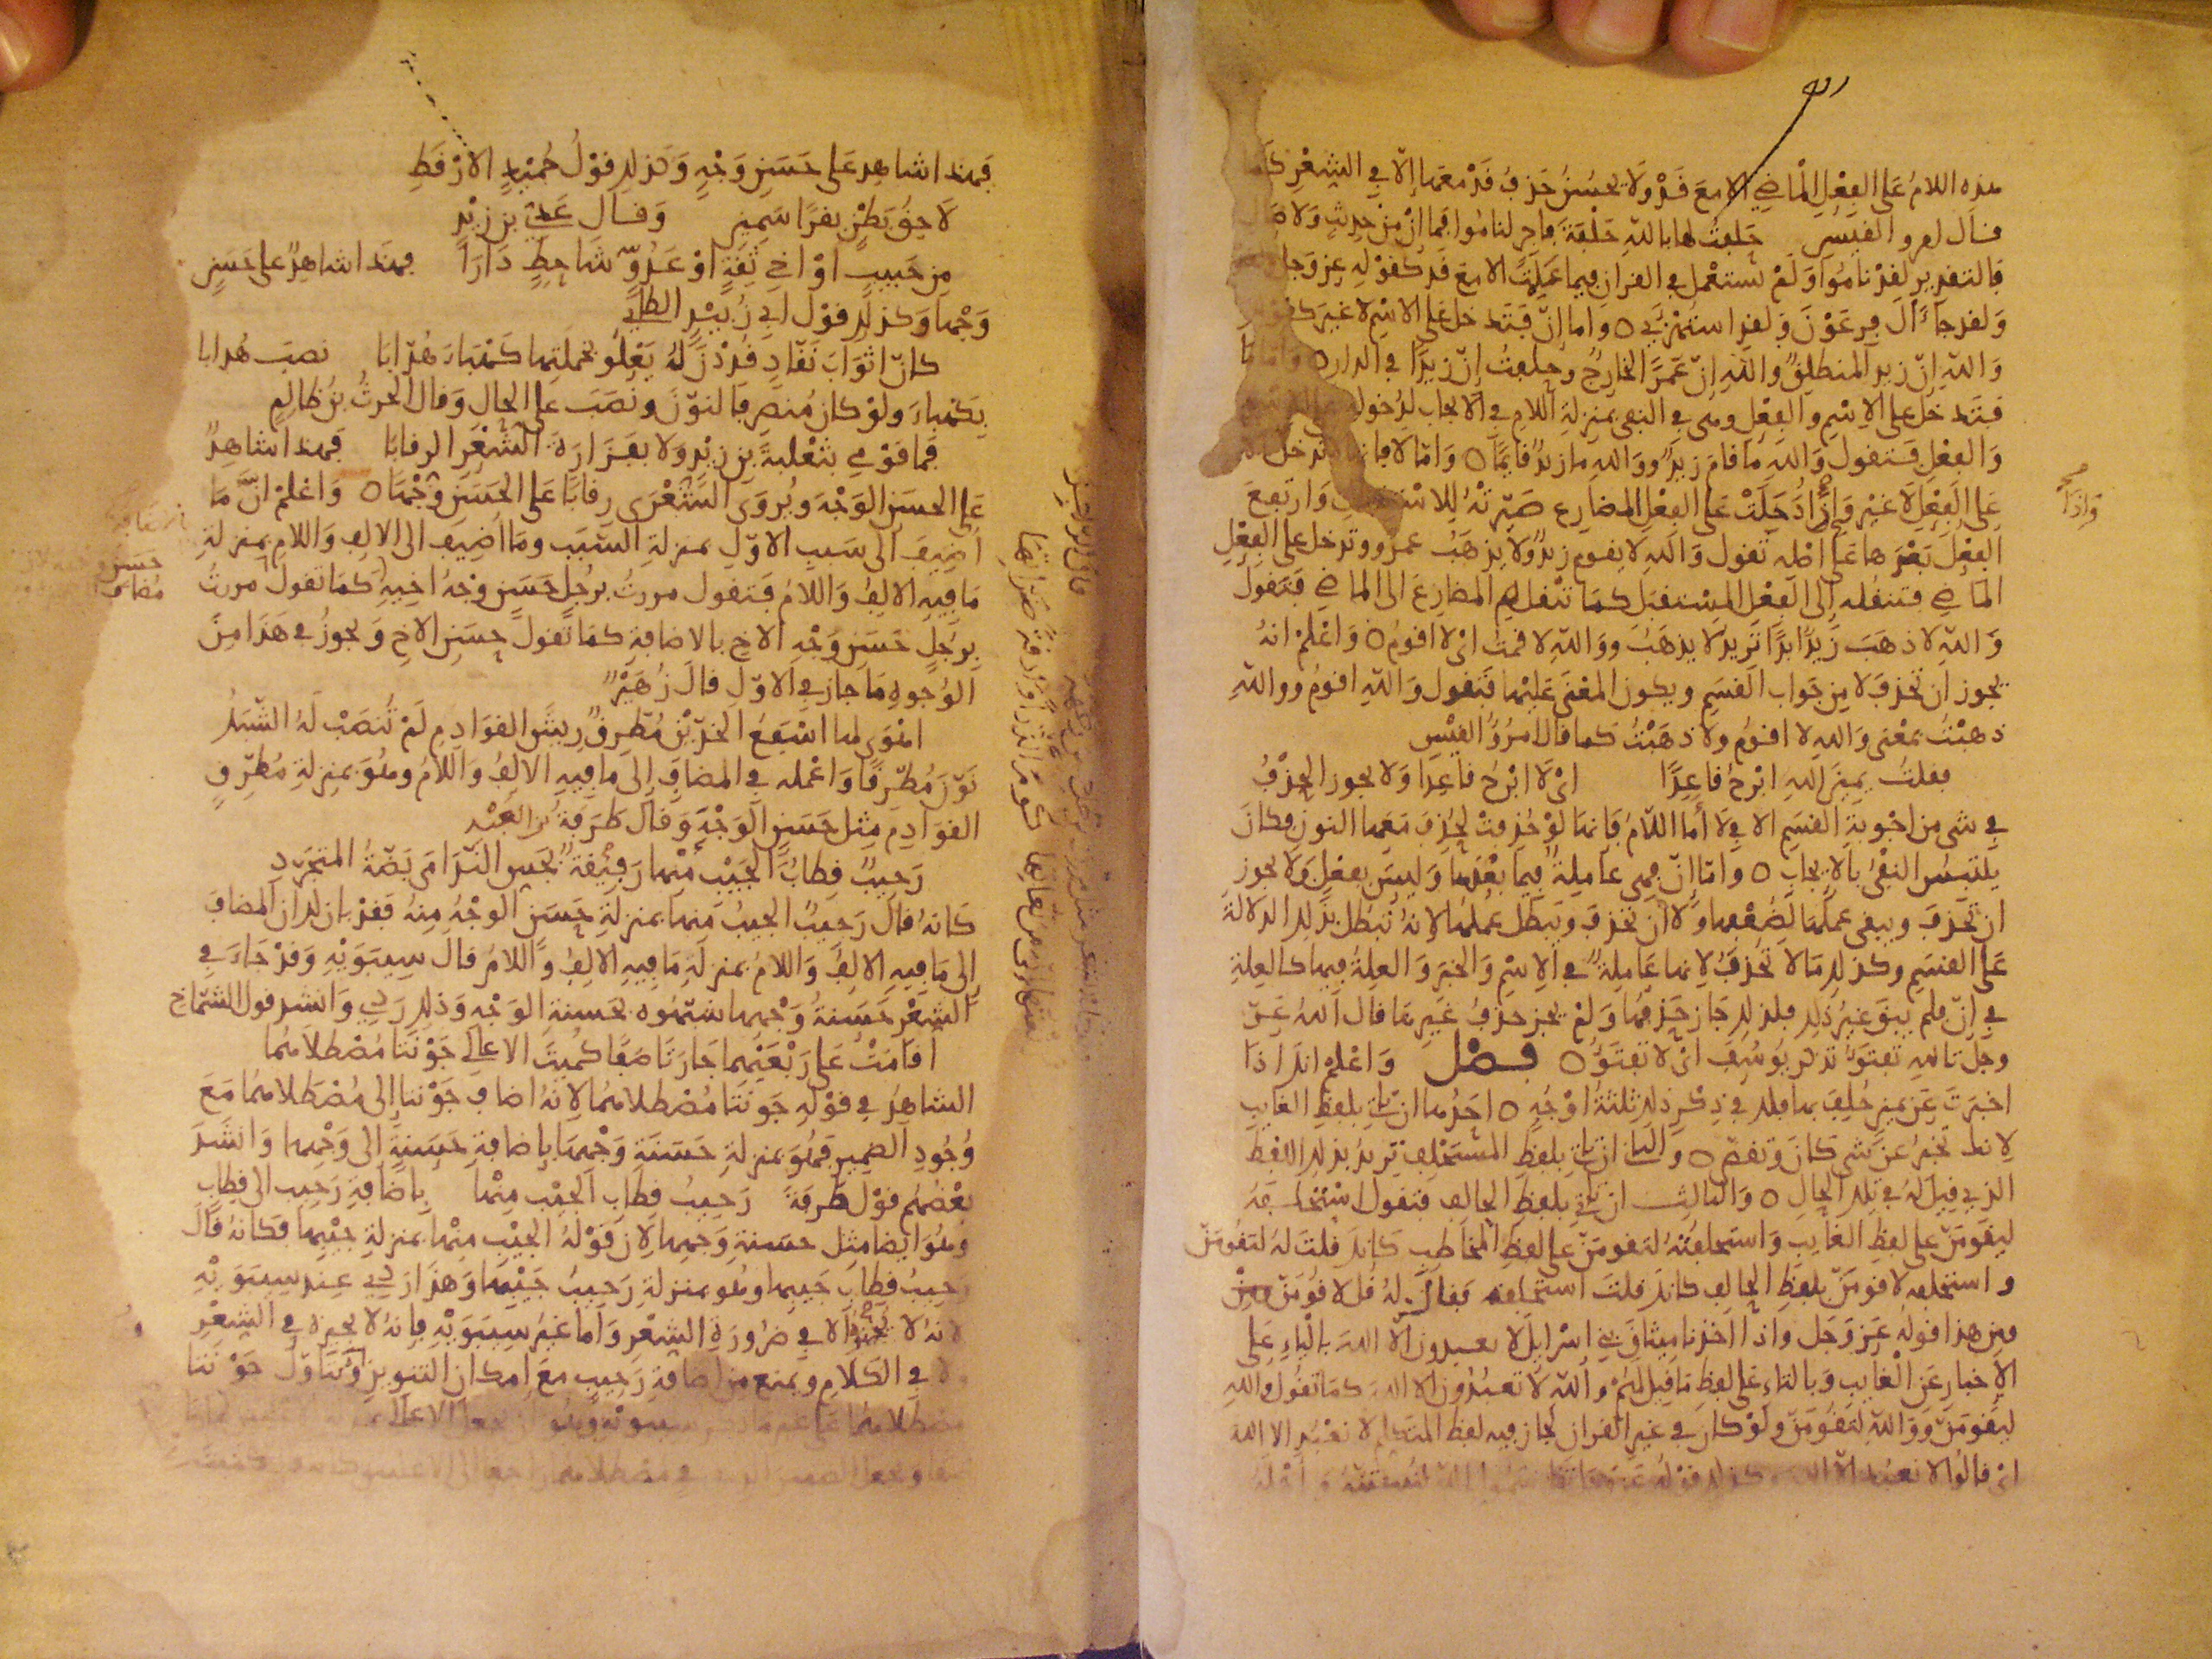 هذه اللام على الفعل الماضي إلا مع قد ولا يحسن حذف قد معها إلا في الشعر كما
قال امرو القيس حلفت لها بالله حلفة فاجر لناموا فما إن من حديث ولا صال
فالتقدير لقد ناموا ولم تستعمل في القران فيما علمت الا مع قد كقوله عز وجل
ولقد جاء آل فرعون ولقد استهزئ واما إن فتدخل على الاسم لا غير كقولك
والله إن زيدا لمنطلق والله إن عمرا لخارج وحلفت إن زيدا في الدار واما ما
فتدخل على الاسم والفعل وهي في النفي بمنزلة اللام في الايجاب لدخولها على الاسم
والفعل فتقول والله ما قام زيد ووالله ما زيد قائما واما لا فانها تدخل
على الفعل لا غير فإذا دخلت على الفعل المضارع صيرته للاستقبال وارتفع
وإذا
الفعل بعدها على اصله تقول والله لا يقوم زيد ولا يذهب عمرو وتدخل على الفعل
الماضي فتنقله إلى الفعل المستقبل كما تنقل لم المضارع الى الماضي فتقول
والله لا ذهب زيد ابدا تريد لا يذهب ووالله لا قمت اي لا اقوم واعلم انه
يجوز ان تحذف لا من جواب القسم ويكون المعنى عليها فتقول والله اقوم ووالله
ذهبت بمعنى والله لا اقوم ولا ذهبت كما قال امرؤ القيس
فقلت يمين الله ابرح قاعدا اي لا ابرح قاعدا ولا يجوز الحذف
في شي من اجوبة القسم الا في لا أما اللام فانها لو حذفت لحذفت معها النون فكان
يلتبس النفي بالايجاب واما إن فهي عاملة فيما بعدها وليس بفعل ولا يجوز
ان تحذف ويبقى عملها لضعفها ولا أن تحذف ويبطل عملها لانه تبطل بذلك الدلالة
على القسم وكذلك ما لا تحذف لانها عاملة في الاسم والخبر والعلة فيها كالعلة
في إن فلم يبق غير ذلك فلذلك جاز حذفها ولم يجز حذف غيرها قال الله عز
وجل تالله تفتؤ تذكر يوسف اي لا تفتؤ فصل واعلم انك اذا
اخبرت عن يمين حلف بها فلك في ذكر ذلك ثلثة اوجه احدها ان ياتي بلفظ الغايب
لانك تخبر عن شي كان وتقضى والثاني ان ياتي بلفظ المستحلف تريد بذلك اللفظ
الذي قيل له في تلك الحال والثالث ان ياتي بلفظ الحالف فتقول استحلفته
ليقومن على لفظ الغايب واستحلفته لتقومن على لفظ المخاطب كانك قلت له لتقومن
واستحلفته لاقومن بلفظ الحالف كانك قلت استحلفته فقال له قل لاقومن
ومن هذا قوله عز وجل واذ اخذنا ميثاق بني اسرايل لا يعبدون الا الله بالياء على
الاخبار عن الغايب وبالتاء على لفظ ما قيل لهم والله لا تعبدون الا الله كما تقول والله
ليقومن ووالله لتقومن ولو كان في غير القران لجاز فيه لفظ المتكلم لا نعبد الا الله
اي قالوا لا نعبد الا الله وكذلك قوله عز وجل تقاسموا بالله لنبيتنه واهله
فهذا شاهد على حسن وجه وكذلك قول حميد الارقط
لاحق بطن بقرا سمين وقال عدي بن زيد
من حبيب او اخي ثقة او عدو شاحط دارا فهذا شاهد على حسن
وجها وكذلك قول ابي زبيد الطائي
كان اثواب نقاد قدرن له يعلو بخملتها كهباء هدابا نصب هدابا
بكهباء ولو كان منصرفا لنون ونصب على الحال وقال الحرث بن ظالم
فما قومي بثعلبة بن زيد ولا بفزارة الشعر الرقابا فهذا شاهد
على الحسن الوجه ويروى الشعرى رقابا على الحسن وجها واعلم ان ما
أضيف الى سبب الاول بمنزلة السبب وما أضيف الى الالف واللام بمنزلة
ما فيه الالف واللام فتقول مررت برجل حسن وجه اخيه كما تقول مررت
برجل حسن وجه الاخ بالاضافة كما تقول حسن الاخ ويجوز في هذا من
الوجوه ما جاز في الاول قال زهير
اهوى لها اسفع الخدين مطرق ريش القوادم لم تنصب له الشبك
نون مطرقا واعمله في المضاف إلى ما فيه الالف واللام وهو بمنزلة مطرق
القوادم مثل حسن الوجه وقال طرفة بن العبد
رحيب قطاب الجيب منها رفيقة بجس الندامى بضة المتجرد
كانه قال رحيب الجيب منها بمنزلة حسن الوجه منه فقد بان لك ان المضاف
إلى ما فيه الالف واللام بمنزلة ما فيه الالف واللام قال سيبويه وقد جاء في
الشعر حسنة وجهها شبهوه بحسنة الوجه وذلك ردي وانشد قول الشماخ
اقامت على ربعيهما جارتا صفا كميتا الاعالي جونتا مصطلاهما
الشاهد في قوله جونتا مصطلاهما لانه اضاف جونتا إلى مصطلاهما مع
وجود الضمير فهو بمنزلة حسنة وجهها بإضافة حسنة إلى وجهها وانشد
بعضهم قول طرفة رحيب قطاب الجيب منها بإضافة رحيب الى قطاب
وهو ايضا مثل حسنة وجهها لان قوله الجيب منها بمنزلة جيبها فكانه قال
رحيب قطاب جيبها وهو بمنزلة رحيب جيبها وهذا ردي عند سيبويه
لانه لا يجيزه الا في ضرورة الشعر واما غير سيبويه فانه لا يجيزه في الشعر
ولا في الكلام ويمنع من اضافة رحيب مع امكان التنوين وتناول جونتا
مصطلاهما على غير ما ذكر سيبويه وهو ان يجعل الاعالي